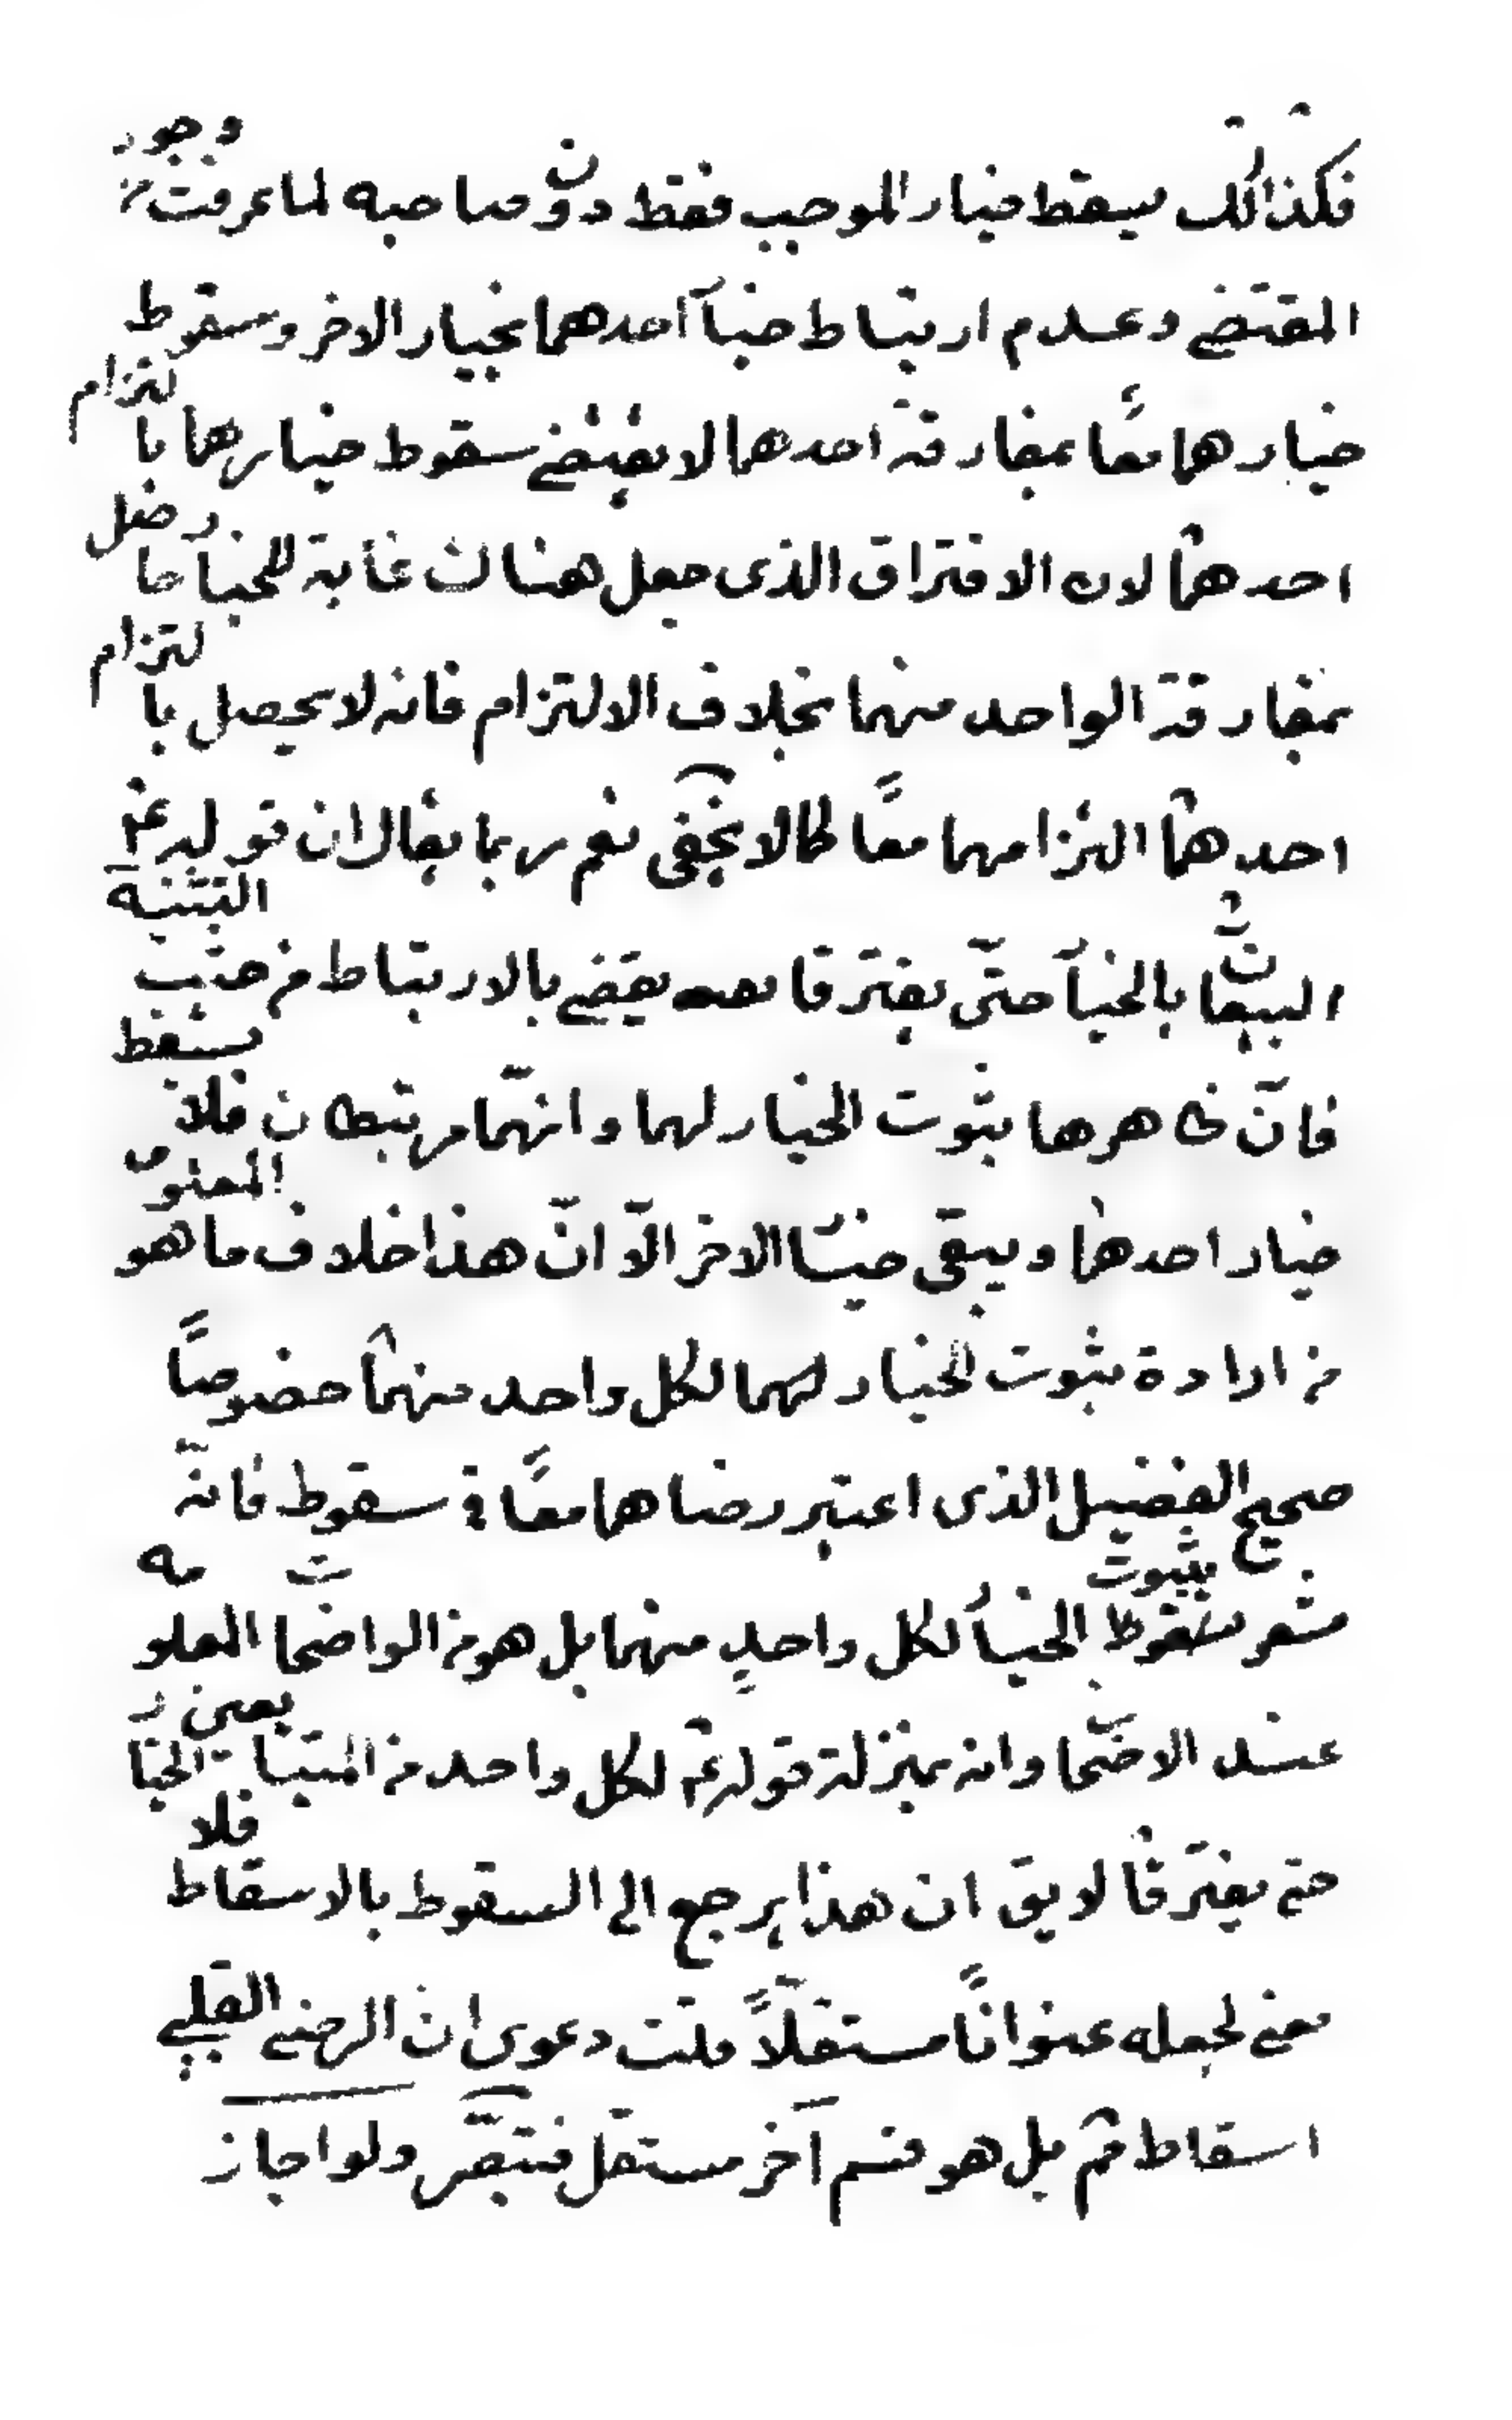 فكذالك يسقط خيار الموجب فقط دون صاحبه لما عرفت من وجود
المقتضے وعدم ارتباط خيا احدهما بخيار الاخر وسقوط
خيارهما معًا بمفارقة احدهما لا يقتضے سقوط خيارهما بالتزام
احدهما لان الافتراق الذى جعل هناك غاية للخيا حاصل
بمفارقة الواحد منهما بخلاف الالتزام فانه لا يحصل بالتزام
احدهما التزامهما معًا كما لا يخفى نعم ربما يقال ان قوله ع
البيعان بالخيا حتّى يفترقا يقضے بالارتباط من حيث التثنية
فانّ ظاهرها ثبوت الخيار لهما وانهّما مرتبطان فلا يسقط
خيار احدهما ويبقى خيا الاخر الّا انّ هذا خلاف ما هو المعلوم
من ارادة ثبوت الخيار لهما لكل واحد منهما خصوصاً
صحيح الفضيل الذى اعتبر رضاهما معًا في سقوط فانّه
مشعر بثبوت الخيا لكل واحدٍ منهما بل هو من الواضحات المعلومه
عند الاصحا وانه بمنزلة قوله ع لكل واحد من المتبايعين الخيار
حتى يفترقا لا يق ان هذا يرجع الى السقوط بالاسقاط فلا
معنى لجعله عنوانًا مستقلًّا قلت دعوى ان الرضے القلبے
اسقاط ثم بل هو قسم آخر مستقل فتبصّر ولو اجاز